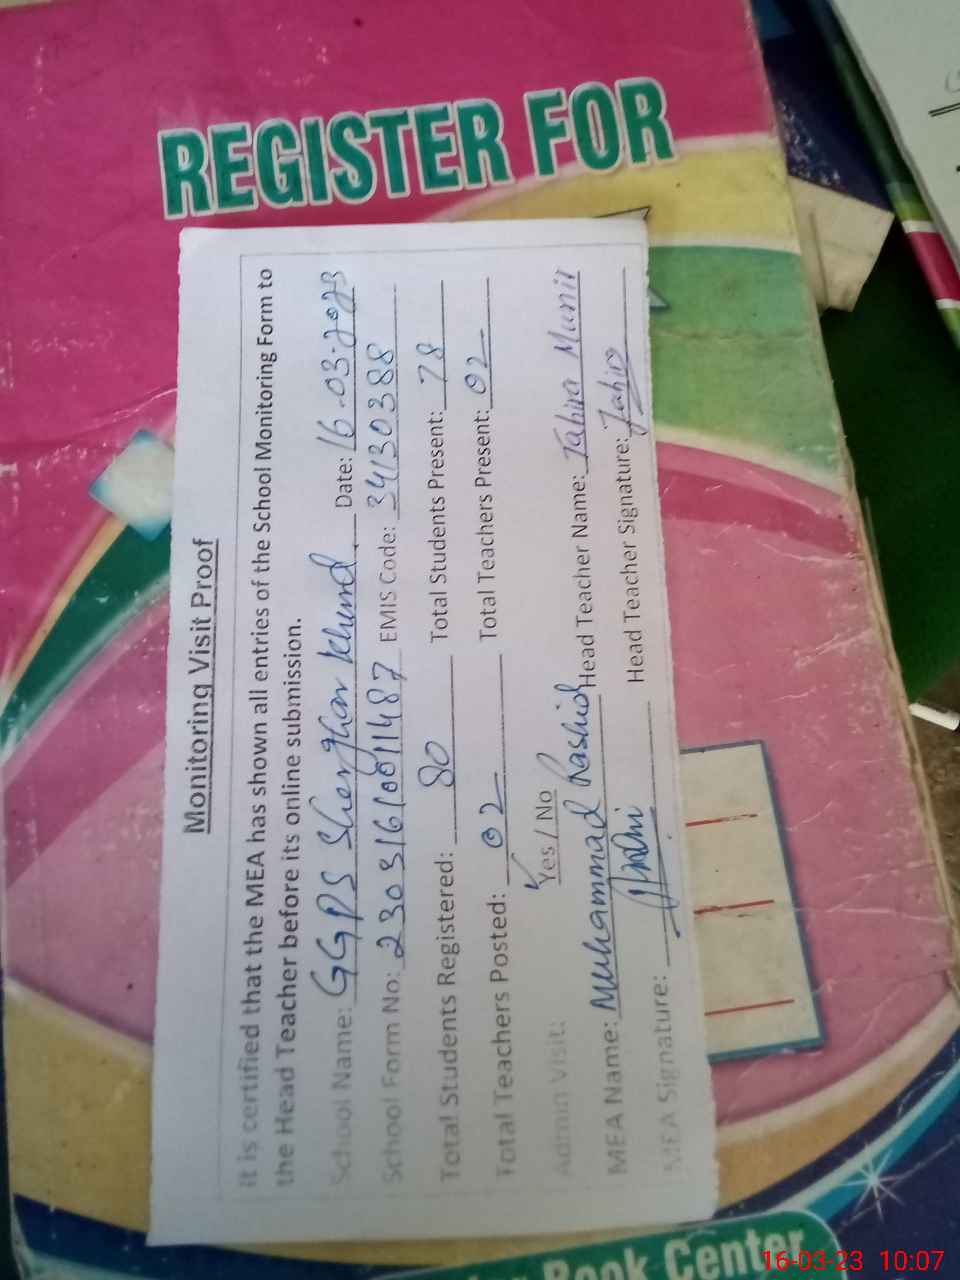 REGISTER FOR
Monitoring Visit Proof
It is certified that the MEA has shown all entries of the School Monitoring Form to
the Head Teacher before its online submission.
School Name: GGPS Sherghar Khurd Date: 16-03-2023
School Form No: 2303161001187 EMIS Code: 34130388
Total Students Registered: 80 Total Students Present: 78
Total Teachers Posted: 02 Total Teachers Present: 02
Admin Visit: Yes / No
MEA Name: Muhammad Rashid Head Teacher Name: Tahira Munir
MEA Signature: Head Teacher Signature: Tahira
Book Center
16-03-23 10:07